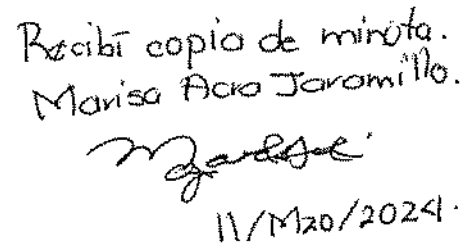 Recibí copia de minuta.
Marisa Acra Jaramillo.
11/Mzo/2024.